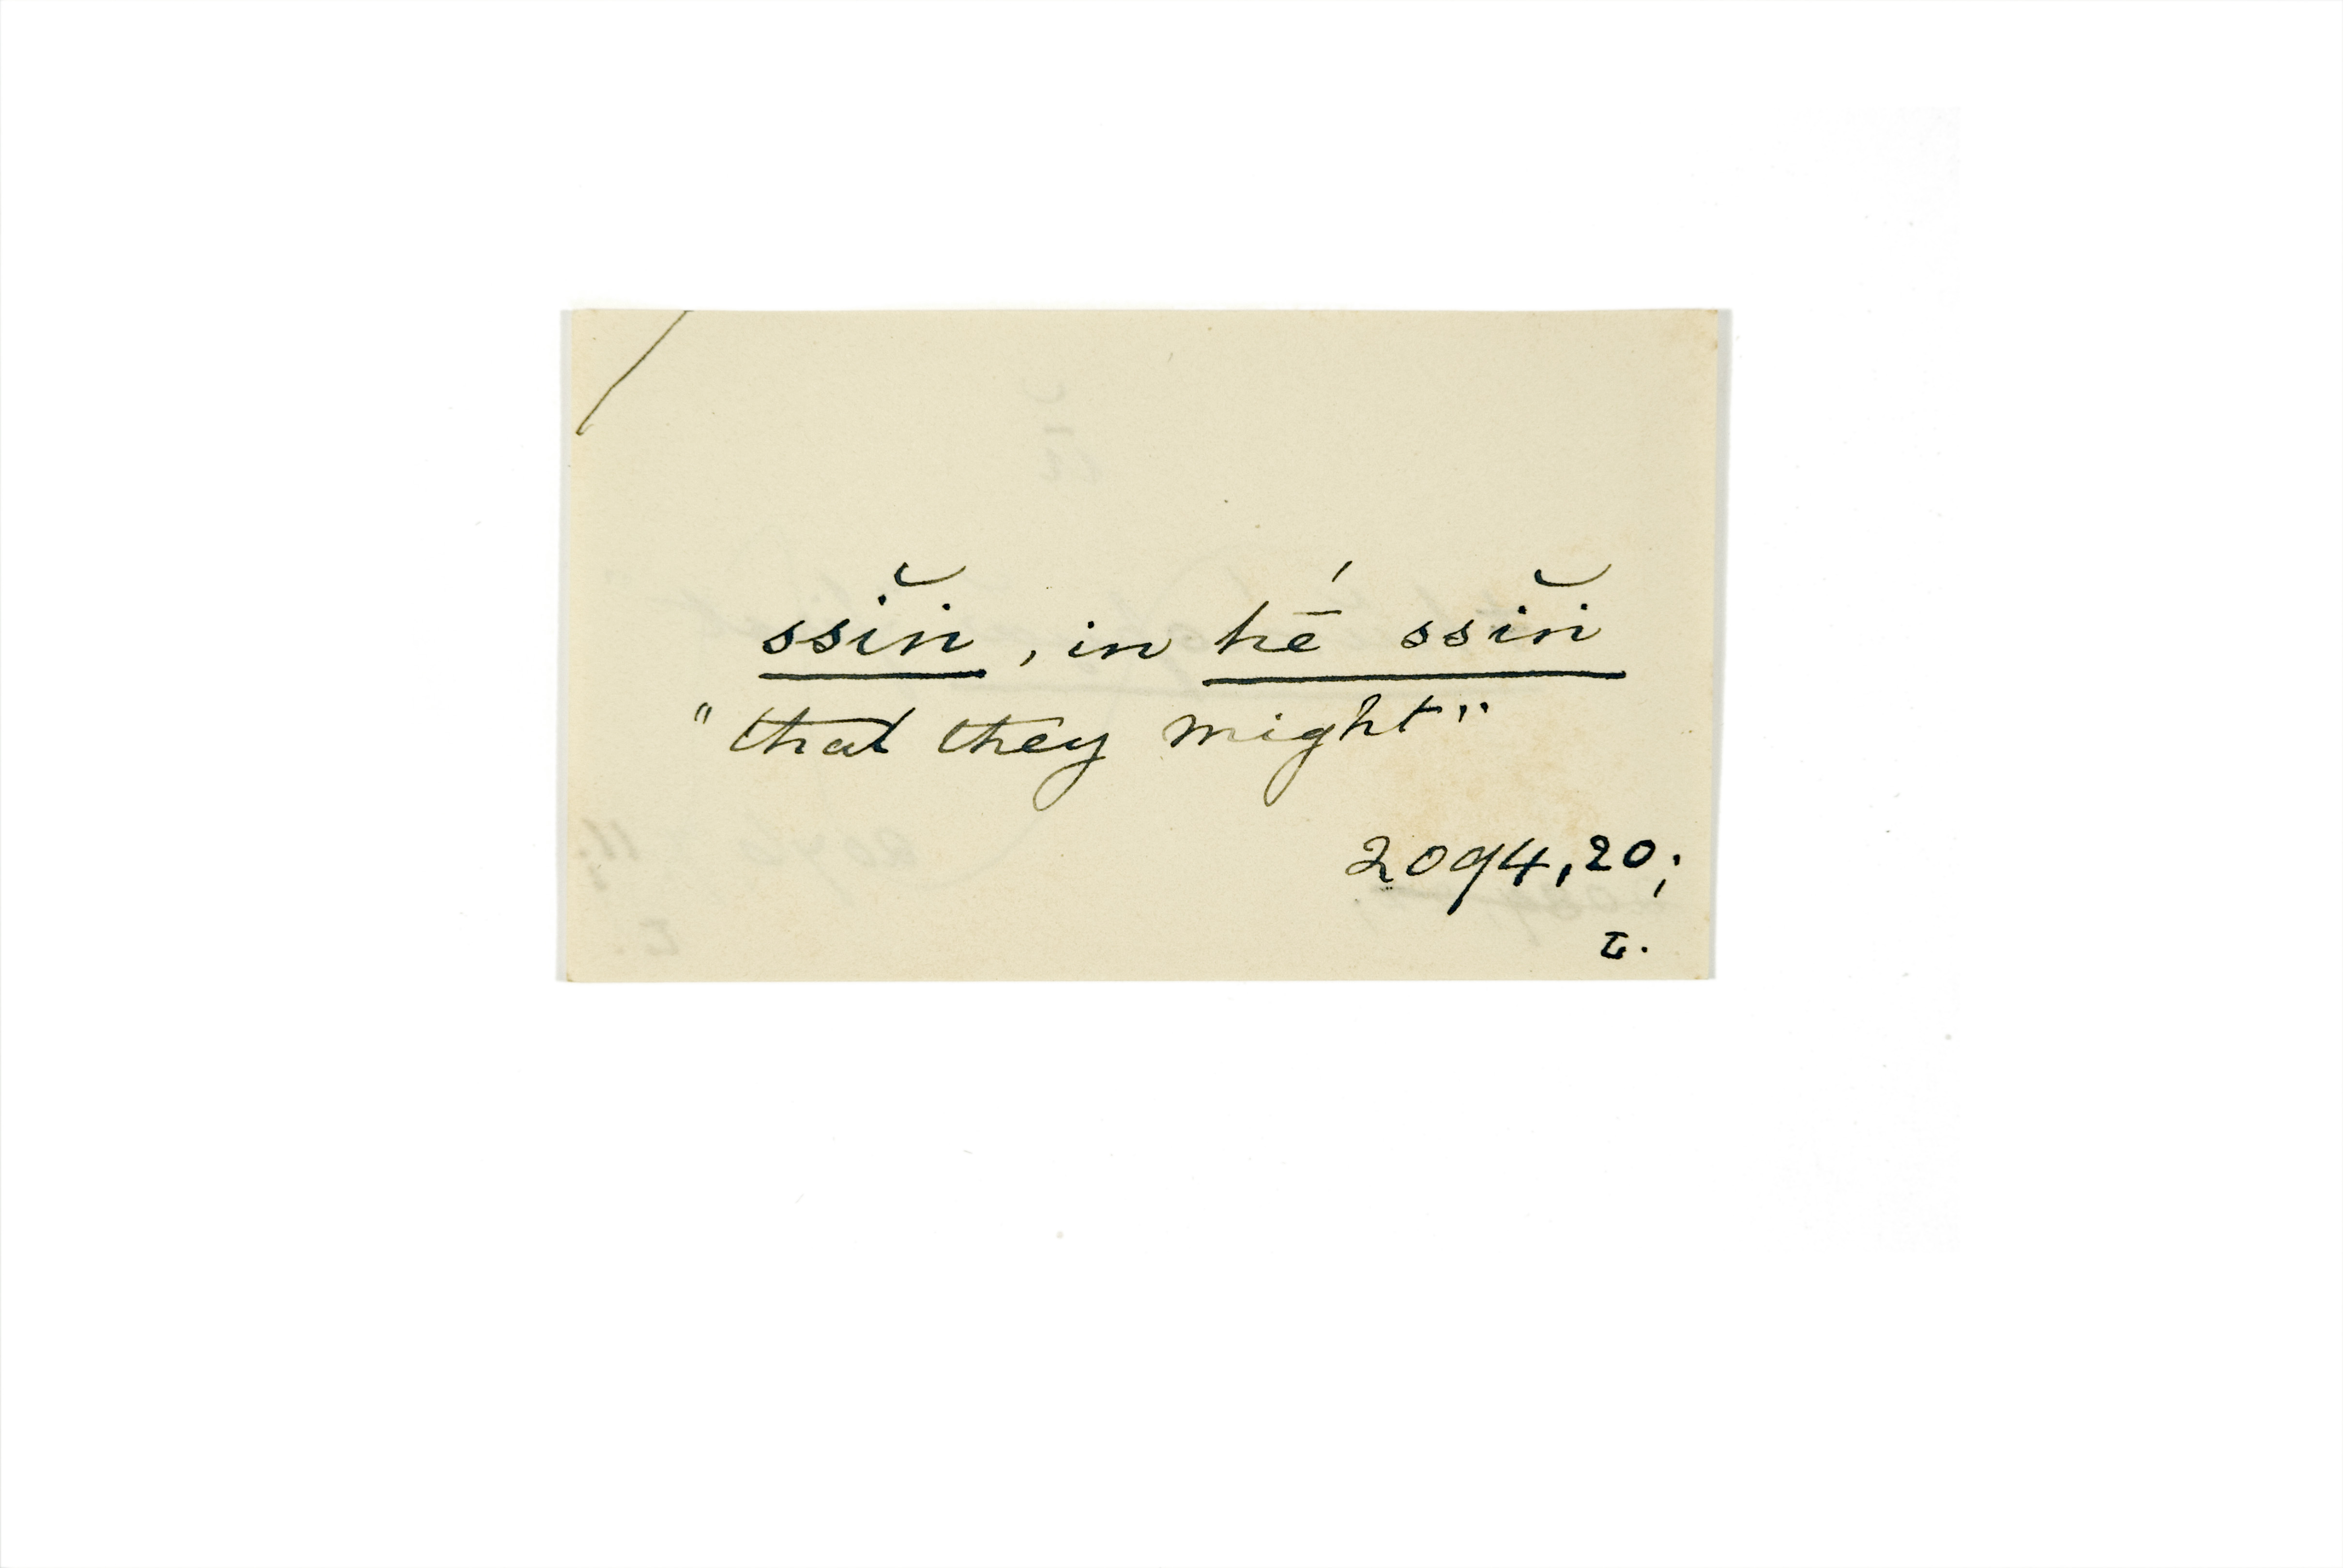 ssĭn̆, in hḗ ssĭn̆
"that they might"
2094,20;
I.